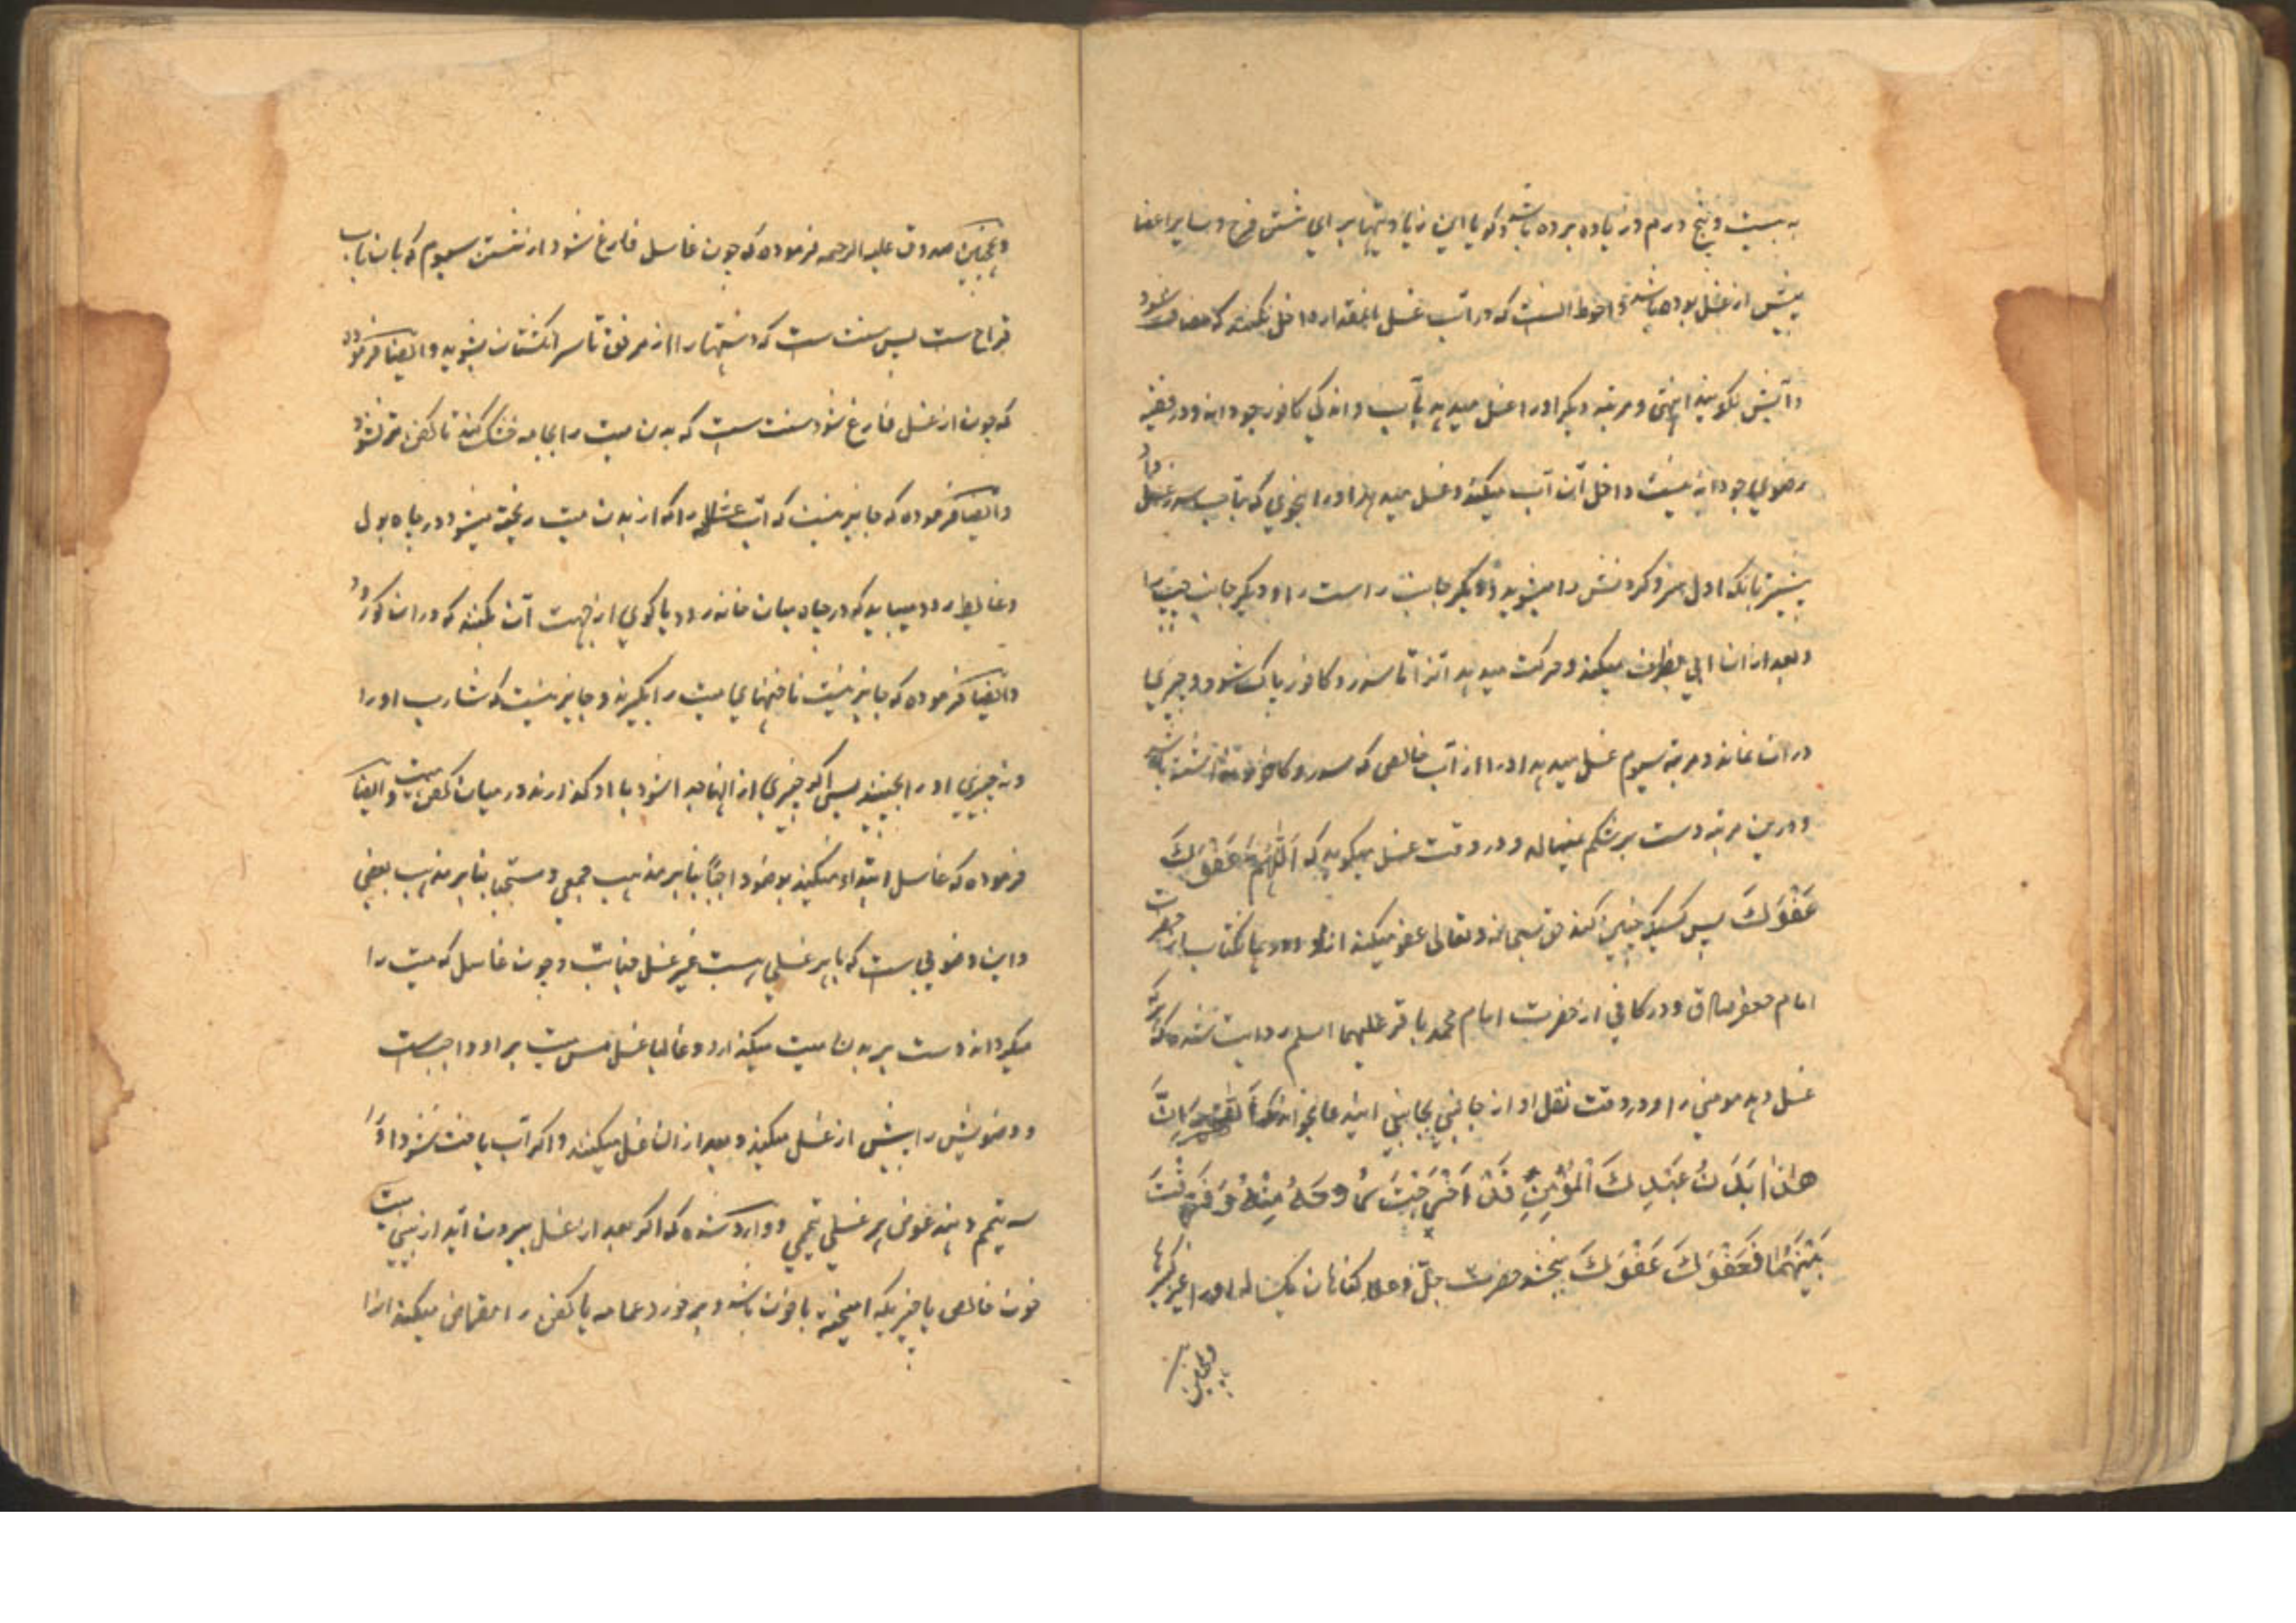 به بیست و پنج درم و زیاده برده باشد و گویا این زیادتیها برای شستن فرج و سایر اعضا
پیش از غسل بوده باشد و احوط انست که در آب غسل اینمقدار داخل نکنند که مضاف شود
و آبش بگویند انتهی و مرتبه دیگر او را غسل میدهد بآب و اندکی کافور جودانه و در فقیه
رضوی جودانه نیست داخل آن آب میکند و غسل میدهد او را بنحوی که بآب سدر غسل داد
پیشتر بانکه اول سر و گردنش را میشوید و دیگر جانب راست را و دیگر جانب چپ را
و بعد از ان ابی بظرف میکند و حرکت میدهد انرا تا سدر و کافور پاک شود و چیزی
در ان نماند و مرتبه سیوم غسل میدهد او را از آب خالصی که سدر و کافور نداشته باشد
و درین مرتبه دست بر شکم نمیمالد و در وقت غسل میگوید که اَللّٰهُمَّ عَفْوَكَ
عَفْوَكَ پس کسیکه چنین کند حق سبحانه و تعالی عفو میکند ازو و در همان کتاب از حضرت
امام جعفر صادق و در کافی از حضرت امام محمد باقر علیهما السلم روایت شده که هر که
غسل دهد مومنی را و در وقت نقل او از جانبی بجانبی ایندعا بخواند که اَللّٰهُمَّ اِنَّ
هٰذا بَدَنُ عَبْدِكَ الْمُؤْمِنِ قَدْ اَخْرَجْتَ رُوحَهُ مِنْهُ وَ فَرَّقْتَ
بَيْنَهُمٰا فَعَفْوَكَ عَفْوَكَ ببخشد حضرت جلّ و علا گناهان یکساله او را غیر کبیرها
و همچنین
و همچنین صدوق علیه الرحمه فرموده که چون غاسل فارغ شود از شستن سیوم که بان باب
قراح ست پس سنت ست که دستها را از مرفق تا سر انگشتان بشوید و ایضا فرموده
که چون از غسل فارغ شود سنت ست که بدن میت را بجامه خشک کنند تا کفن تر نشود
و ایضا فرموده که جایز نیست که آب غساله را که از بدن میت ریخته میشود در چاه بول
و غایط رود میباید که در چاه میان خانه رود یا گوی از جهت آن بکنند که در ان گو رود
و ایضا فرموده که جایز نیست ناخنهای میت را بگیرند و جایز نیست که شارب او را
و نه چیزی او را بچینند پس اگر چیزی از انها جدا شود با او گذارند در میان کفن میت و ایضا
فرموده که غاسل ابتدا میکند بوضو واجبًا بنابر مذهب جمعی و مستحبا بنابر مذهب بعضی
و این وضوئی ست که با هر غسلی هست غیر غسل جنابت و چون غاسل که میت را
میگرداند دست بر بدن میت میگذارد و غالبا غسل مس میت بر او واجبست
و وضویش را پیش از غسل میکند و بعد از ان غسل میکند و اگر آب یافت نشود او را
سه تیمم دهند عوض هر غسلی تیممی و وارد شده که اگر بعد از غسل بیرون آید از بینی میت
خون خالصی یا چیزیکه امیخته با خون باشد و بر خورد عمامه یا کفن را مقراض میکند انرا